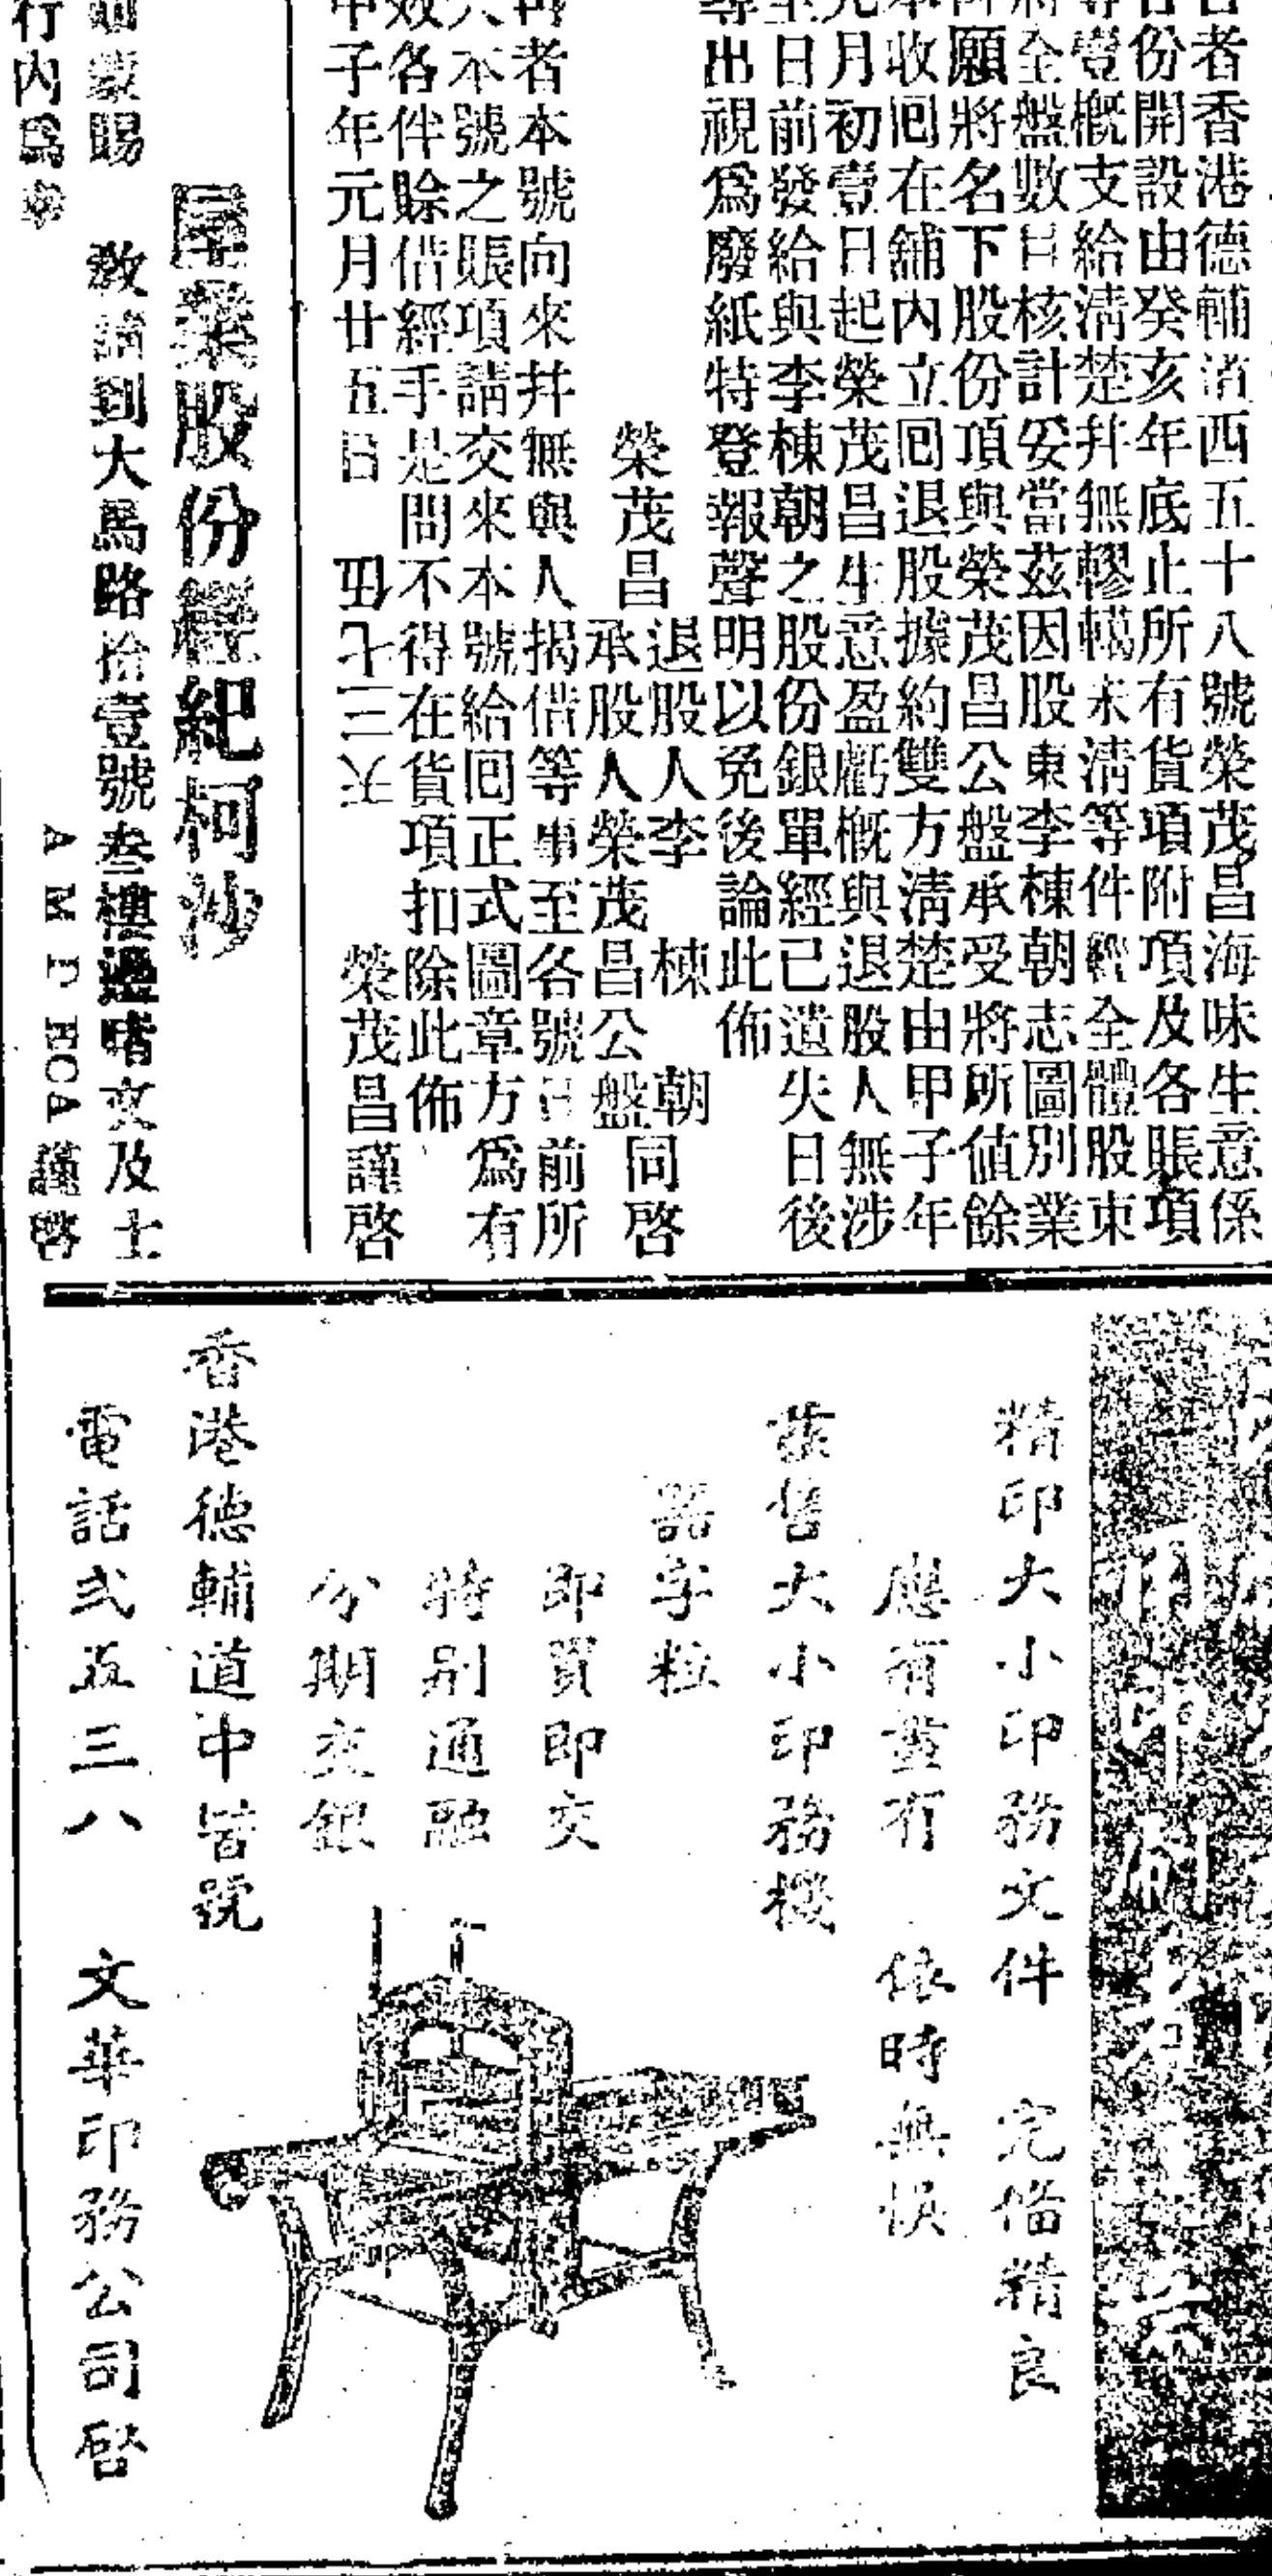 者香港德輔道西五十八號榮茂昌海味生意係
份開設由癸亥年底止所有貨項附項及各賬項
壹概支給清楚并無轇轕未清等件經全體股東
將全盤數目核計妥當茲因股東李棟朝志圖別業
願將名下股份項與榮茂昌公盤承受將所值餘
本收囘在舖內立囘退股據約雙方淸楚由甲子年
元月初壹日起榮茂昌生意盈虧概與退股人無涉
至日前發給與李棟朝之股份銀單經已遺失日後
尋出視爲廢紙特登報聲明以免後論此佈
榮茂昌
退股人李棟朝
承股人榮茂昌公盤
同啓
再者本號向來幷無與人揭借等事至各號日前所
欠本號之賬項請交來本號給囘正式圖章方爲有
效各伴賒借經手是問不得在貨項扣除此佈
甲子年元月廿五日
榮茂昌謹啓
屋業股份經紀柯沙
如蒙賜
敎請到大馬路拾壹號叁樓
文及士
行內爲幸
謹啓
精印大小印務文件 完備精良
應有盡有 依時無悞
發售大小印務機
器字粒
即買即交
特別通融
分期交銀
香港德輔道中
號
電話弍五三八 文華印務公司啓